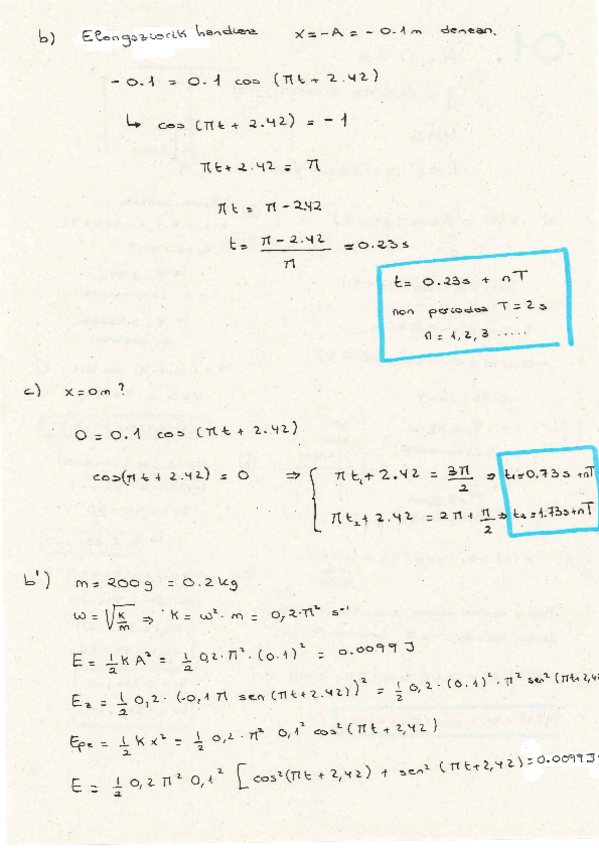 b) Elongaziorik handiena x = -A = -0.1m denean.
-0.1 = 0.1 cos (πt + 2.42)
↳ cos (πt + 2.42) = -1
πt + 2.42 = π
πt = π - 2.42
t = (π - 2.42)/π = 0.23 s
t = 0.23s + nT
non periodoa T = 2s
n = 1, 2, 3 .....
c) x = 0m ?
0 = 0.1 cos (πt + 2.42)
cos(πt + 2.42) = 0 ⇒ { πt₁ + 2.42 = 3π/2 ⇒ t₁ = 0.73s + nT
πt₂ + 2.42 = 2π + π/2 ⇒ t₂ = 1.73s + nT
b') m = 200 g = 0.2 kg
ω = √(K/m) ⇒ K = ω² · m = 0,2 · π² s⁻¹
E = 1/2 K A² = 1/2 0,2 · π² · (0.1)² = 0.0099 J
E_z = 1/2 0,2 · (-0,1 π sen (πt + 2.42))² = 1/2 0,2 · (0.1)² · π² sen² (πt + 2,42
E_pe = 1/2 K x² = 1/2 0,2 · π² 0,1² cos² (πt + 2,42)
E = 1/2 0,2 π² 0,1² [cos² (πt + 2,42) + sen² (πt + 2,42) = 0.0099 J